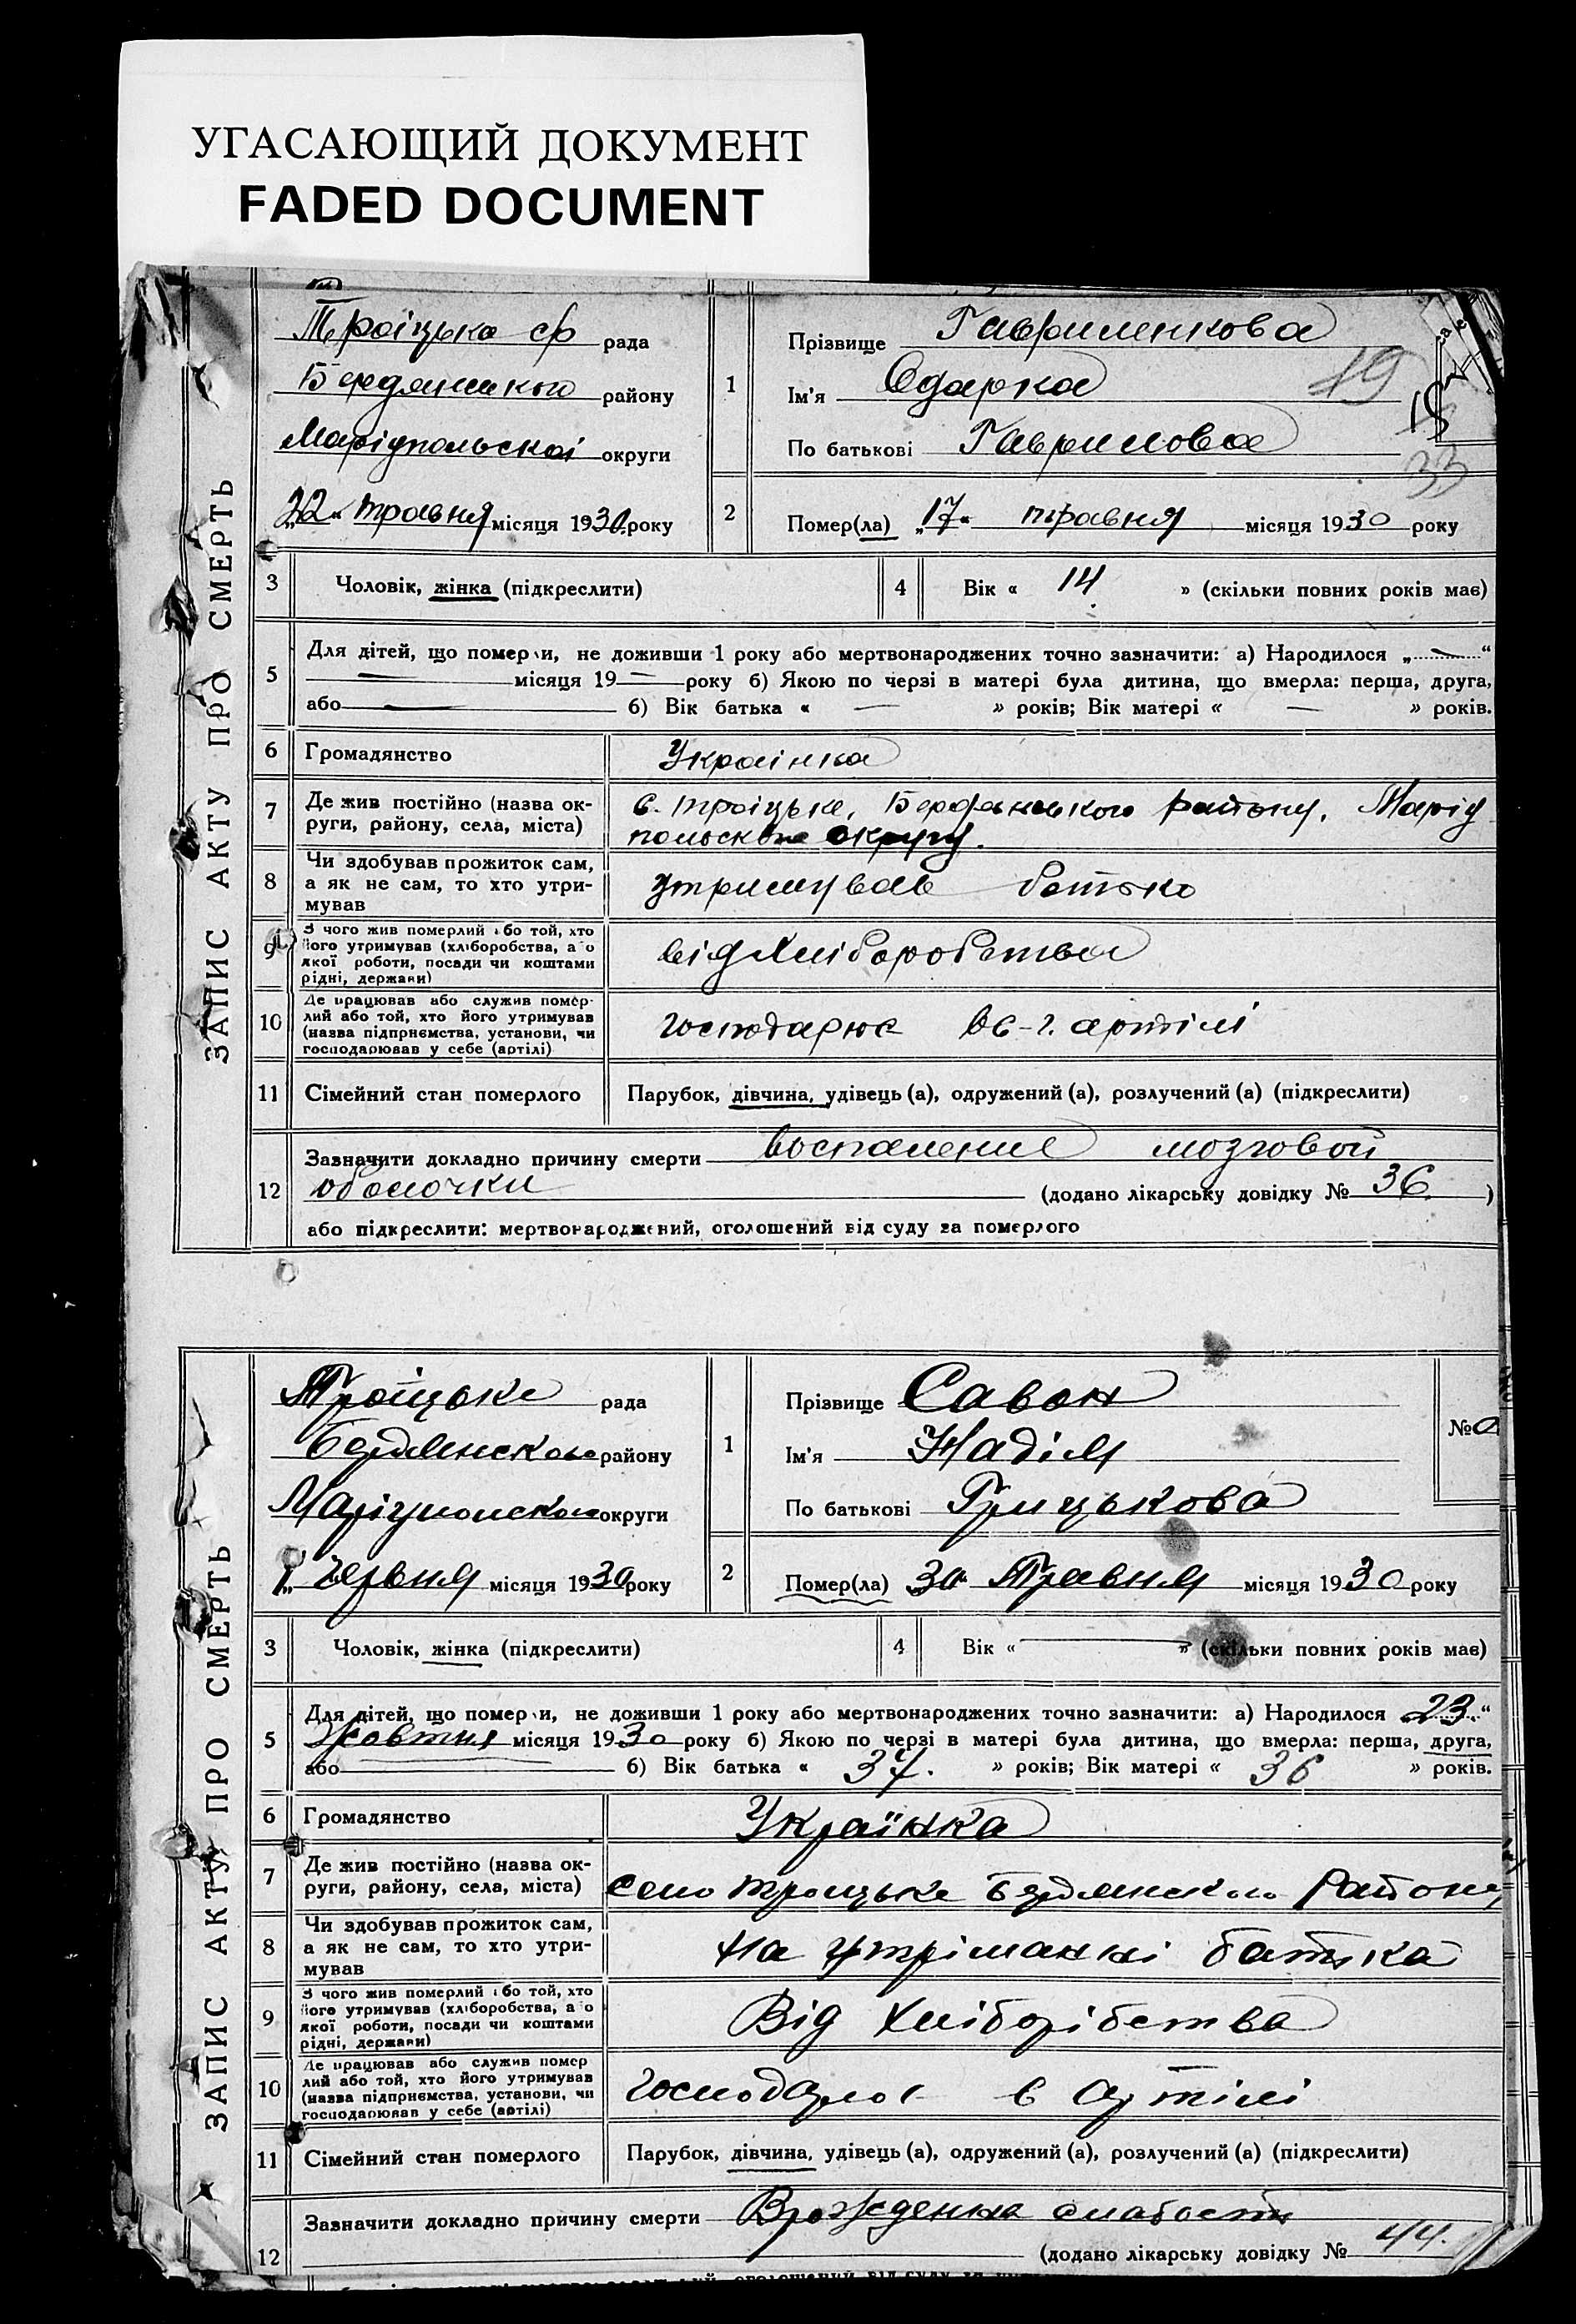 УГАСАЮЩИЙ ДОКУМЕНТ
FADED DOCUMENT
ЗАПИС АКТУ ПРО СМЕРТЬ
Троіцька ср рада
Бердянського району
Маріупольскої округи
„22“ травня місяця 1930 року
1
Прізвище Гавриленкова
Ім'я Одарка
По батькові Гаврилова
19
33
2
Помер(ла) „17“ травня місяця 1930 року
3 Чоловік, жінка (підкреслити)
4 Вік « 14 » (скільки повних років має)
5
Для дітей, що померли, не доживши 1 року або мертвонароджених точно зазначити: а) Народилося „—“
— місяця 19 — року б) Якою по черзі в матері була дитина, що вмерла: перша, друга,
або — б) Вік батька « — » років; Вік матері « — » років.
6 Громадянство Украінка
7 Де жив постійно (назва ок-
руги, району, села, міста)
с. Троіцьке, Бердянського району, Маріу
польскою округу.
8 Чи здобував прожиток сам,
а як не сам, то хто утри-
мував
утримував батько
9 З чого жив померлий або той, хто
його утримував (хліборобства, або
якої роботи, посади чи коштами
рідні, держави)
від Хліборобства
10 Де працював або служив помер-
лий або той, хто його утримував
(назва підприємства, установи, чи
господарював у себе (артілі)
господарює в с-г. артілі
11 Сімейний стан померлого Парубок, дівчина, удівець (а), одружений (а), розлучений (а) (підкреслити)
12
Зазначити докладно причину смерти воспаление мозговой
оболочки (додано лікарську довідку № 36 )
або підкреслити: мертвонароджений, оголошений від суду за померлого
ЗАПИС АКТУ ПРО СМЕРТЬ
Троїцьке рада
Бердянского району
округи
1 червня місяця 1930 року
1
Прізвище Савон
Ім'я Надія
По батькові Грицькова
№
2
Помер(ла) 30 Травня місяця 1930 року
3 Чоловік, жінка (підкреслити)
4 Вік « — » (скільки повних років має)
5
Для дітей, що померли, не доживши 1 року або мертвонароджених точно зазначити: а) Народилося „23“
Жовтня місяця 1930 року б) Якою по черзі в матері була дитина, що вмерла: перша, друга,
або — б) Вік батька « 37. » років; Вік матері « 36 » років.
6 Громадянство Українка
7 Де жив постійно (назва ок-
руги, району, села, міста)
село Троицьке Бердянского Району
8 Чи здобував прожиток сам,
а як не сам, то хто утри-
мував
На утріманні батька
9 З чого жив померлий або той, хто
його утримував (хліборобства, або
якої роботи, посади чи коштами
рідні, держави)
Від Хліборібства
10 Де працював або служив помер
лий або той, хто його утримував
(назва підприємства, установи, чи
господарював у себе (артілі)
в артілі
11 Сімейний стан померлого Парубок, дівчина, удівець (а), одружений (а), розлучений (а) (підкреслити)
12
Зазначити докладно причину смерти Врожденна слабость
(додано лікарську довідку № 44.